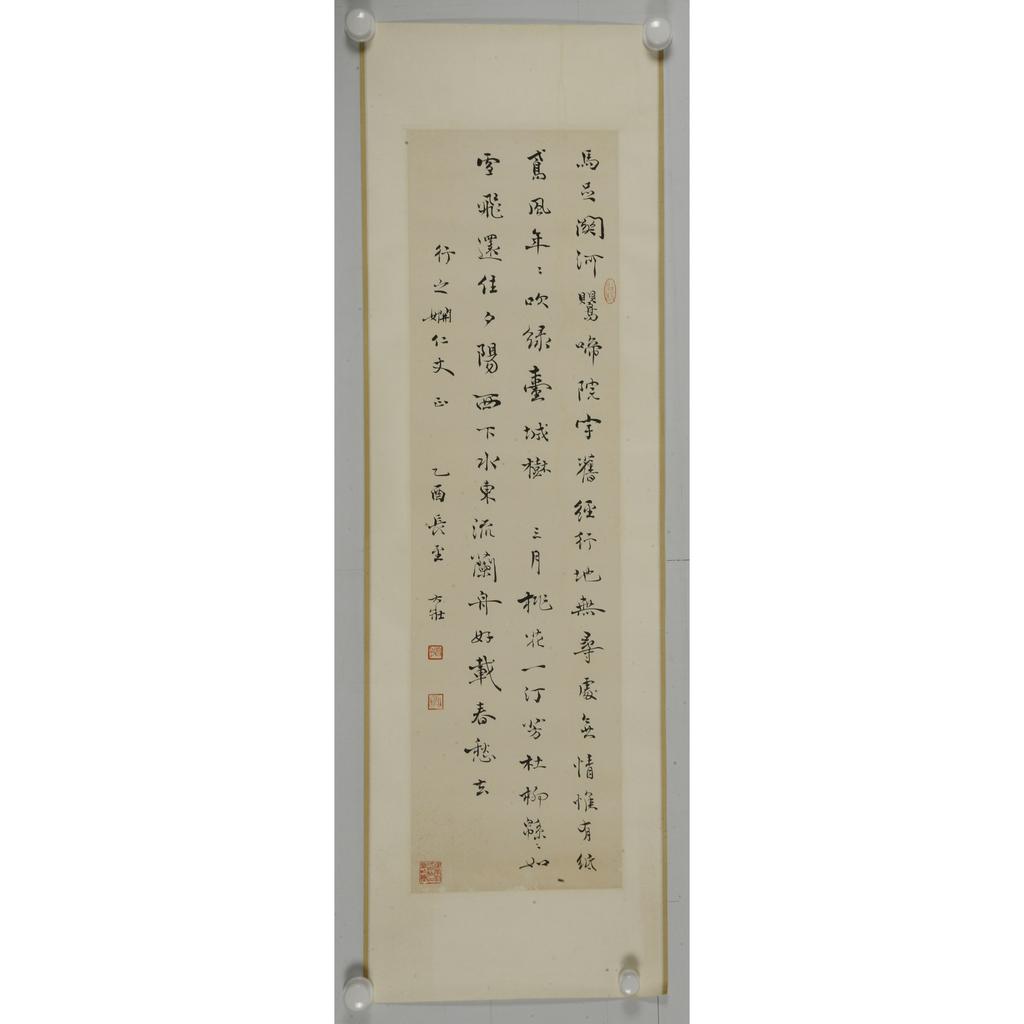 馬足關河鸎啼院宇舊經行地無尋處無情惟有紙
鳶風年〻吹綠臺城樹 三月桃花一汀芳杜柳緜〻如
雪飛還住夕陽西下水東流蘭舟好載春愁去
行之婣仁丈 正 乙酉長至 大壯